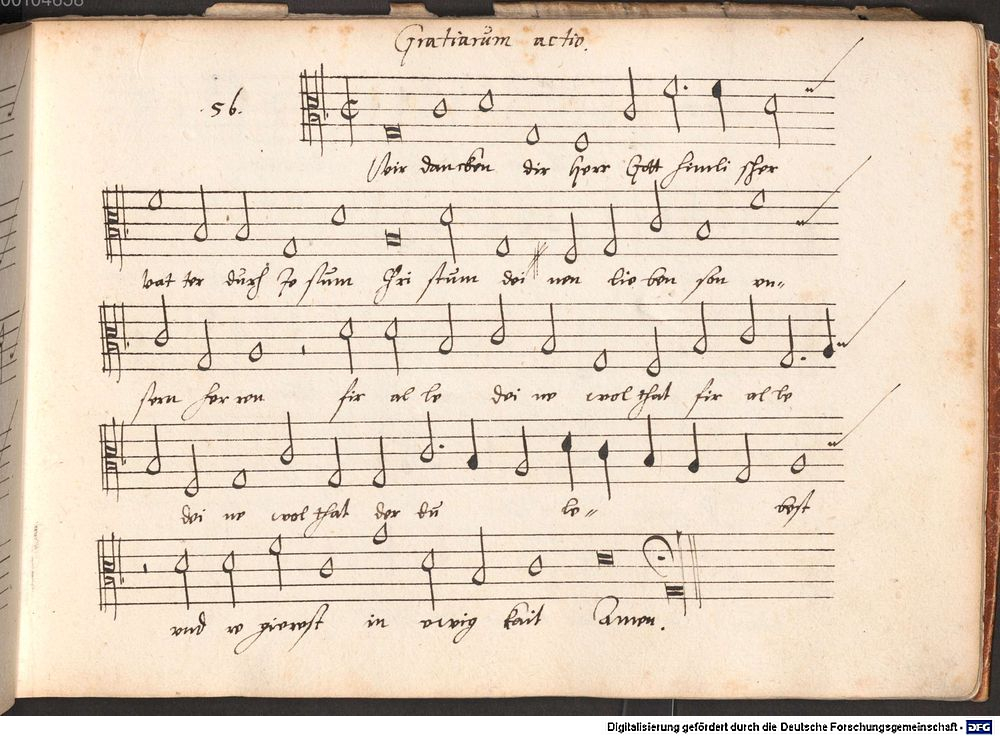 00104638
Gratiarum actio.
.56.
Wir dancken dir herr Gott himli scher
vat ter durch Je sum Chri stum dei nen lie ben son vn=
sern her ren fir al le dei ne wol that fir al le
dei ne wol that der du le= best
vnd re gierest in ewig kait Amen.
Digitalisierung gefördert durch die Deutsche Forschungsgemeinschaft - DFG